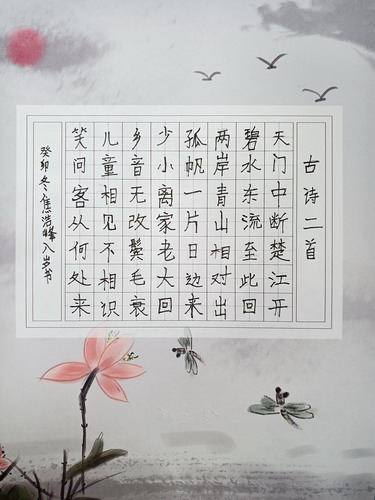 古诗二首
天门中断楚江开
碧水东流至此回
两岸青山相对出
孤帆一片日边来
少小离家老大回
乡音无改鬓毛衰
儿童相见不相识
笑问客从何处来
癸卯冬焦浩峰八岁书